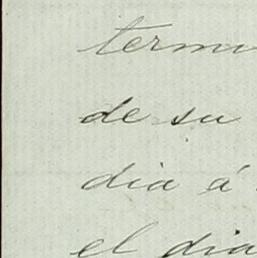 termi
de su
dia á
el dia